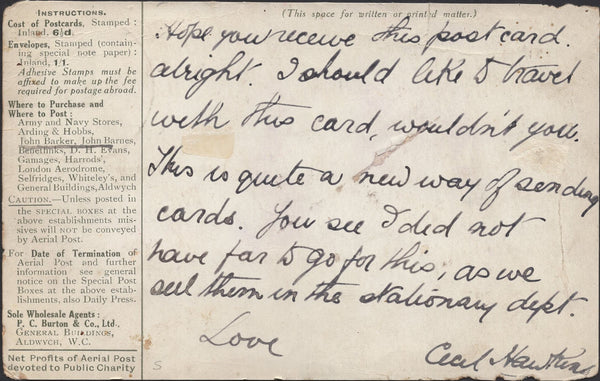 INSTRUCTIONS.
Cost of Postcards, Stamped :
Inland, 6/d.
Envelopes, Stamped (contain-
ing special note paper) :
Inland, 1/1.
Adhesive Stamps must be
affixed to make up the fee
required for postage abroad.
Where to Purchase and
Where to Post :
Army and Navy Stores,
Arding & Hobbs,
John Barker, John Barnes,
Benetfinks, D. H. Evans,
Gamages, Harrods',
London Aerodrome,
Selfridges, Whiteley's, and
General Buildings, Aldwych
CAUTION.—Unless posted in
the SPECIAL BOXES at the
above establishments mis-
sives will NOT be conveyed
by Aerial Post.
For Date of Termination of
Aerial Post and further
information see general
notice on the Special Post
Boxes at the above estab-
lishments, also Daily Press.
Sole Wholesale Agents :
P. C. Burton & Co., Ltd.,
GENERAL BUILDINGS,
ALDWYCH, W.C.
Net Profits of Aerial Post
devoted to Public Charity
(This space for written or printed matter.)
Hope you receive this postcard.
alright. I should like to travel
with this card, wouldn't you.
This is quite a new way of sending
cards. You see I did not
have far to go for this, as we
sell them in the stationary dept.
Love
Cecil Hawkins
S